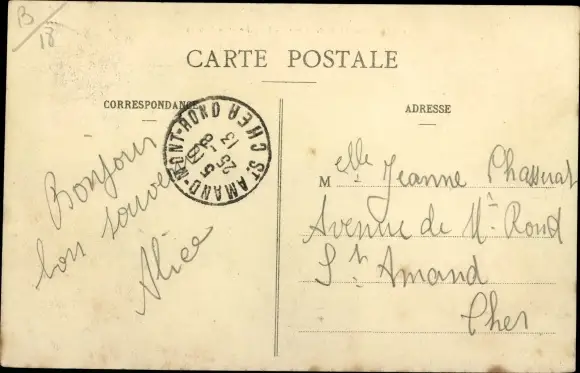 B/18
CARTE POSTALE
CORRESPONDANCE
ADRESSE
ST AMAND-MONT-ROND CHER
25 - 8
13
Bonjour
bon souvenir
Alice
Melle Jeanne Chassinat
Avenue de Mt Rond
St Amand
Cher